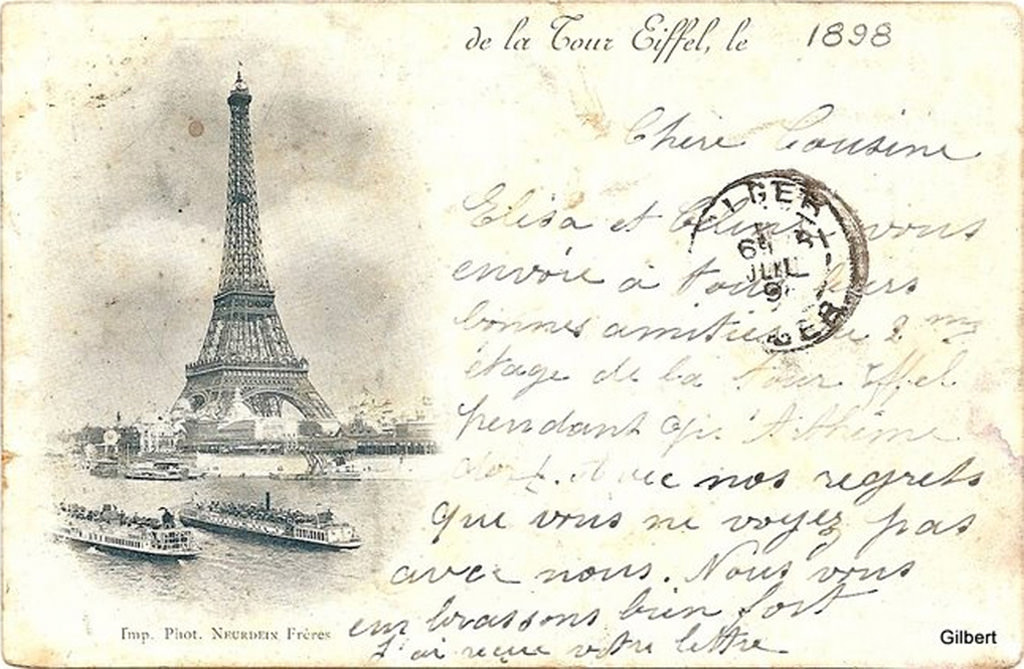 de la Tour Eiffel, le 1898
Chère Cousine
Elisa et vous
envoie à tous
bonnes amitiés 2 me
étage de la Tour Iffel
pendant qu'Athéme
dort. Avec nos regrets
que vous ne voyez pas
avec nous. Nous vous
embrassons bien fort
J'ai reçue votre lettre.
ALGER
JUIL
ALGER
Imp. Phot. NEURDEIN Frères
Gilbert